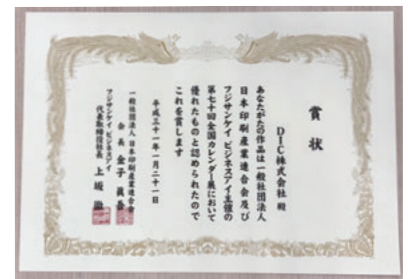 賞状
DIC株式会社 殿
あなたがたの作品は一般社団法人
日本印刷産業連合会及び
フジサンケイ ビジネスアイ主催の
第七十回全国カレンダー展において
優れたものと認められたので
これを賞します
平成三十一年一月二十一日
一般社団法人 日本印刷産業連合会
会長 金子眞吾
フジサンケイ ビジネスアイ
代表取締役社長 上坂